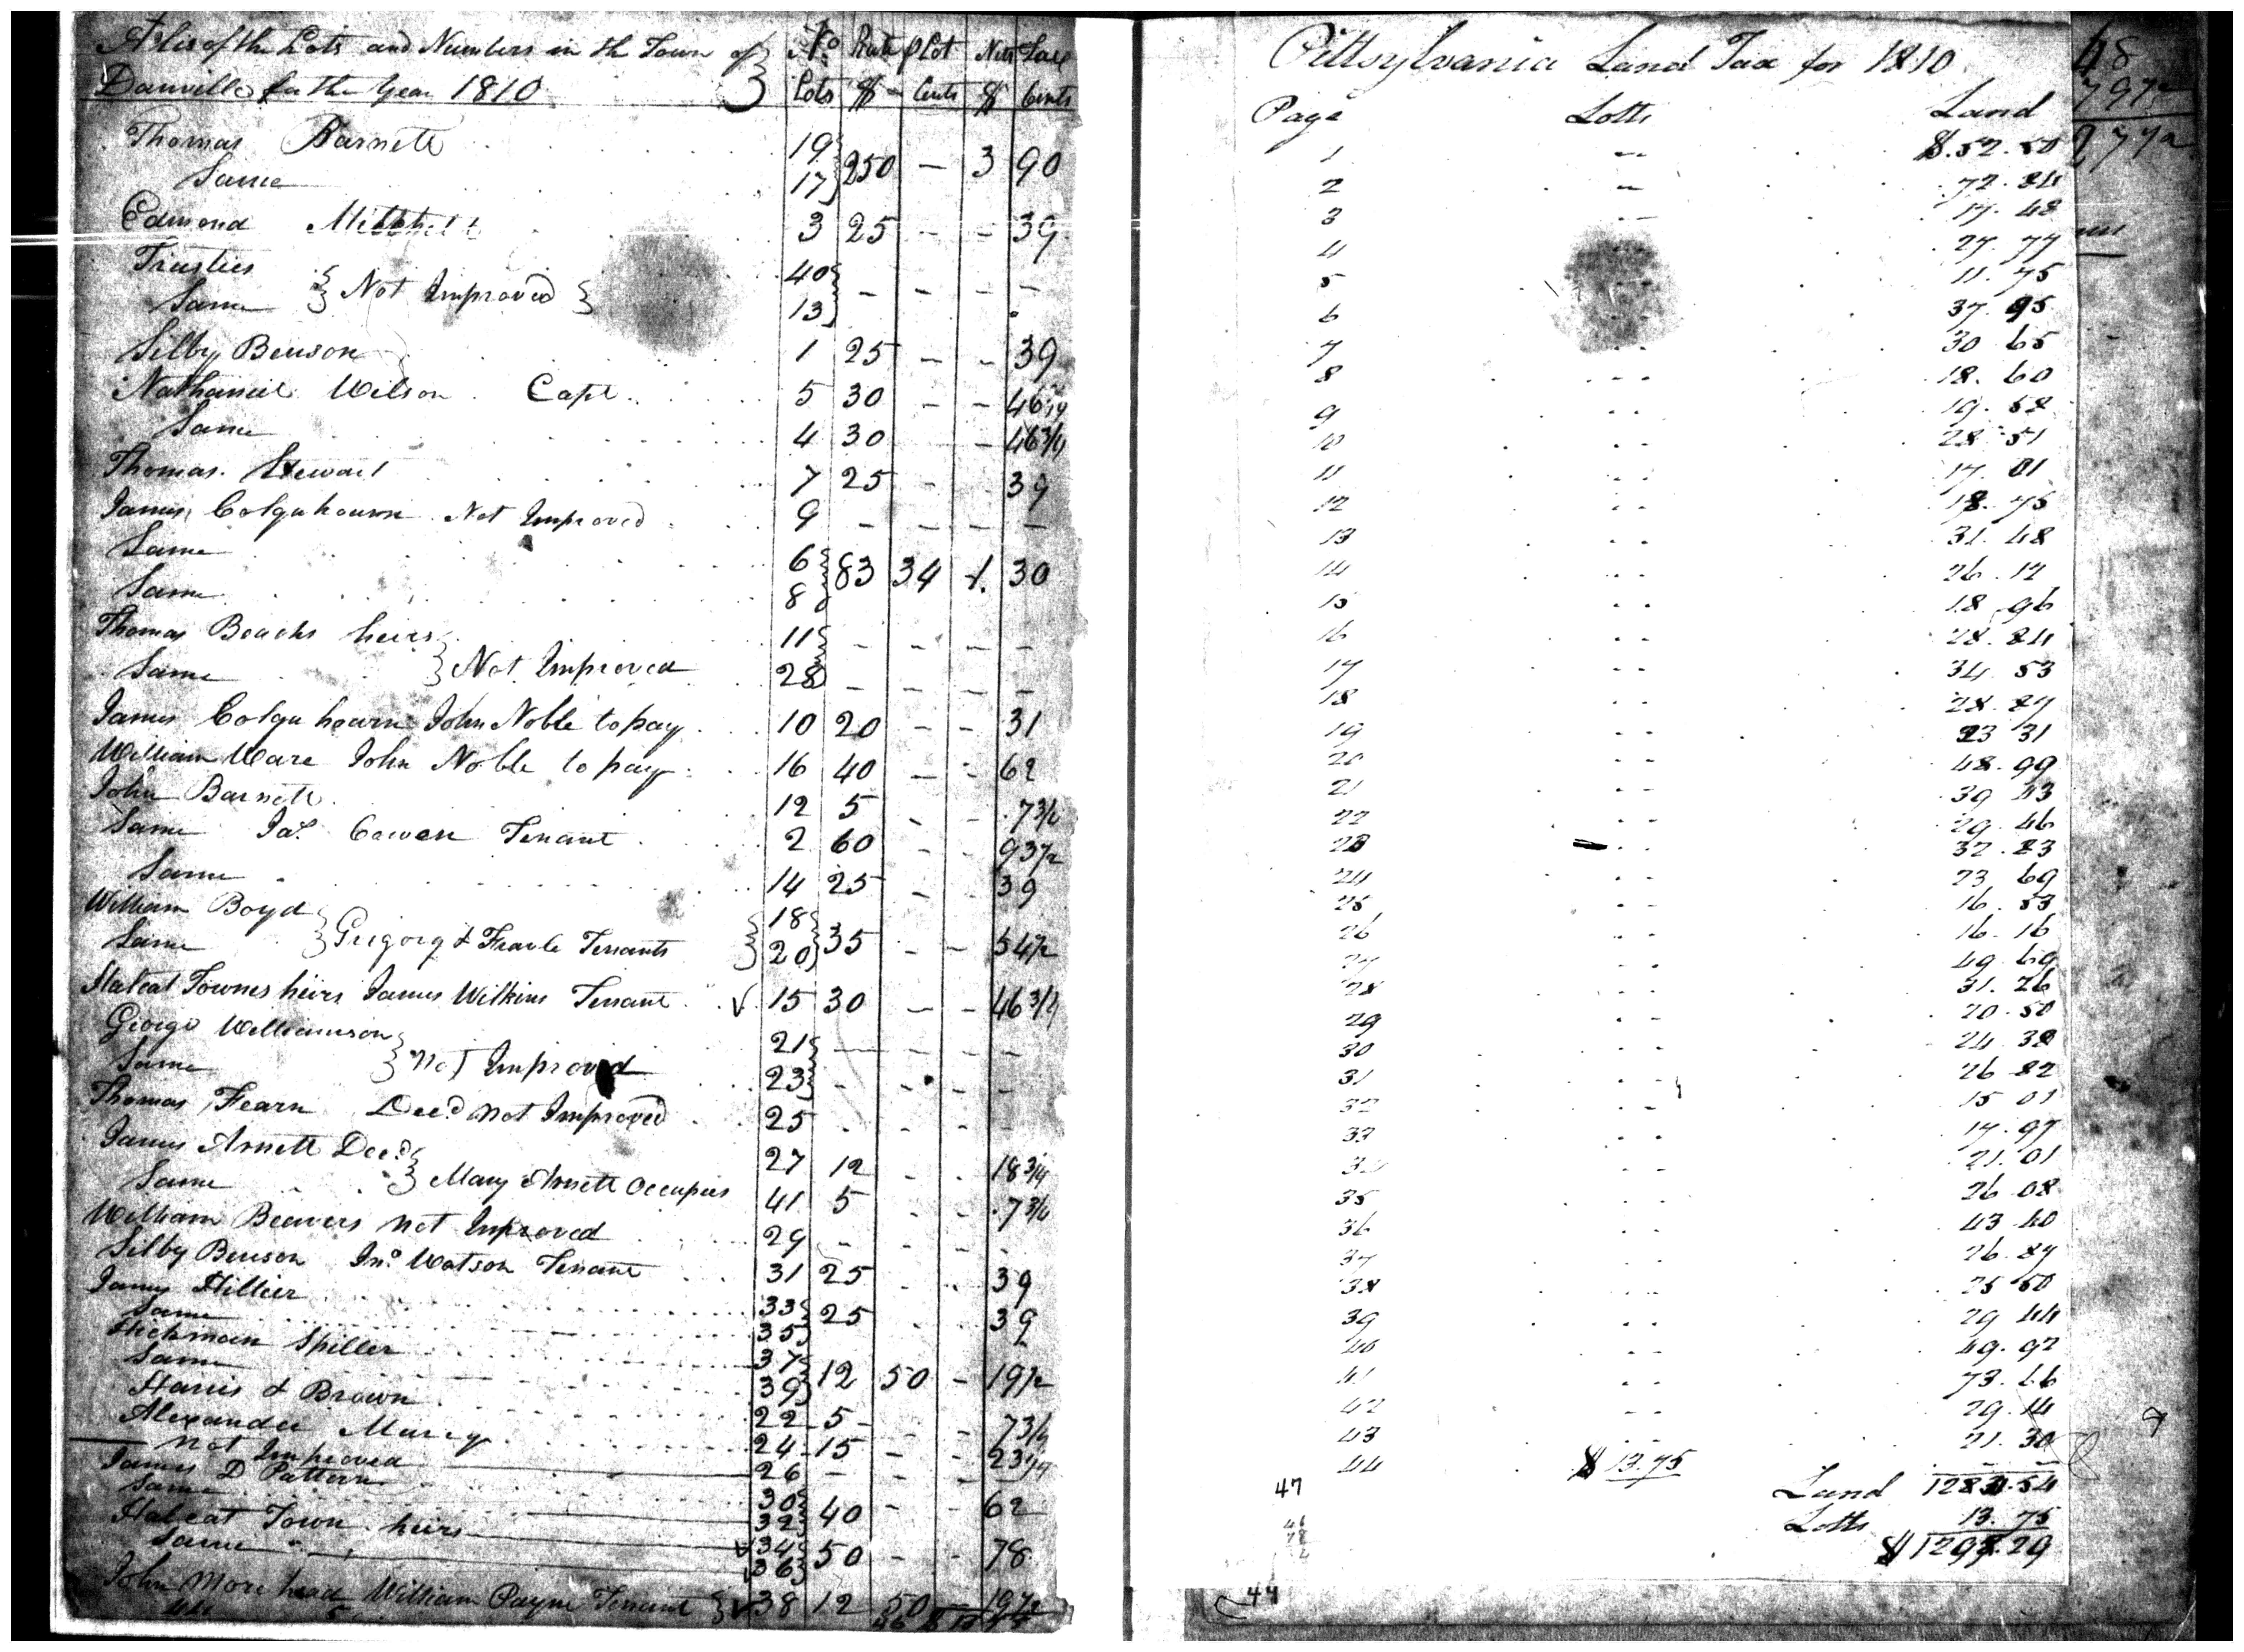 A list of the Lots and Numbers in the Town of } No Rate p Lot Nett Tax
Danville for the Year 1810 } Lots $ - Cents $ Cents
Thomas Barnett 19 } 250 - 3 90
Same 17 }
Edmond Mitchell 3 25 - - 39
Trusties } Not Improved } 40 } - - - -
Same 13 }
Silby Benson 1 25 - - 39
Nathaniel Wilson Capt. 5 30 - - 46 3/4
Same 4 30 - 46 3/4
Thomas Stewart 7 25 - 39
James Colquhoun Not Improved 9 - - - -
Same 6 } 83 34 1. 30
Same 8
Thomas Beachs heirs } 11 } - - - -
Same } Not Improved 28 } - - - -
James Colquhoun John Noble to pay 10 20 - - 31
William Ware John Noble to pay 16 40 - - 62
John Barnett 12 5 - - 7 3/4
Same Jas. Cowen Tenant 2 60 - - 93 1/2
Same 14 25 - - 39
William Boyd } 18 }
Same } Gregory & Tenants } 20 } 35 - - 54 1/2
Halcat Townes heirs James Wilkins Tenant √ 15 30 - - 46 3/4
George Williamson } 21 } - - - -
Same } not Improved 23 } - - - -
Thomas Fearn Decd. not Improved 25 - - - -
James Arnett Decd. } 27 12 - - 18 3/4
Same } Mary Arnett Occupies 41 5 - - 7 3/4
William Beavers not Improved 29 - - - -
Silby Benson Jno. Watson Tenant 31 25 - - 39
James Hillier 33 } 25 - - 39
Same 35 }
Hickman Spiller 37 } 12 50 - 19 1/2
Same 39 }
Harris & Brown 22 5 - - 7 3/4
Alexander 24 15 - - 23 1/4
not Improved 26 - - - -
James D Patton 30 } 40 - - 62
Same 32 }
Halcat Town heirs √ 34 } 50 - - 78
Same √ 36 }
John Morehead William Payne Tenant } √ 38 12 50 - 19 1/2
Pittsylvania Land Tax for 1810
Page Lotts Land
1 - - $.52.50
2 - 72.84
3 - - 17.48
4 27.77
5 11.75
6 - - 37.95
7 - - 30 65
8 - - - 18.60
9 - - 19.58
10 - - 28.51
11 - - 17.01
12 - - 18.75
13 - - 31.48
14 - - 26.12
15 - - 18.96
16 - - 28.84
17 - - 34 53
18 - - 28.87
19 - - 23 31
20 - - 48.99
21 - - 39 43
22 - - 29.46
23 - - 32.23
24 - - 23 69
25 - - 16.53
26 - - 16.16
27 - - 49.69
28 - - 31.26
29 - - 20.50
30 - - 24 38
31 - - 26 82
32 - - 15 01
33 - - 17.97
34 - - 21.01
35 - - 26 08
36 - - 43 40
37 - - 26.87
38 - - 25 50
39 - - 29 44
40 - - 49.92
41 - - 73.66
42 - - 29.14
43 - - 21.30
44 $13.75 - -
47 Land 1284.54
Lotts 13.75
$1298.29
44